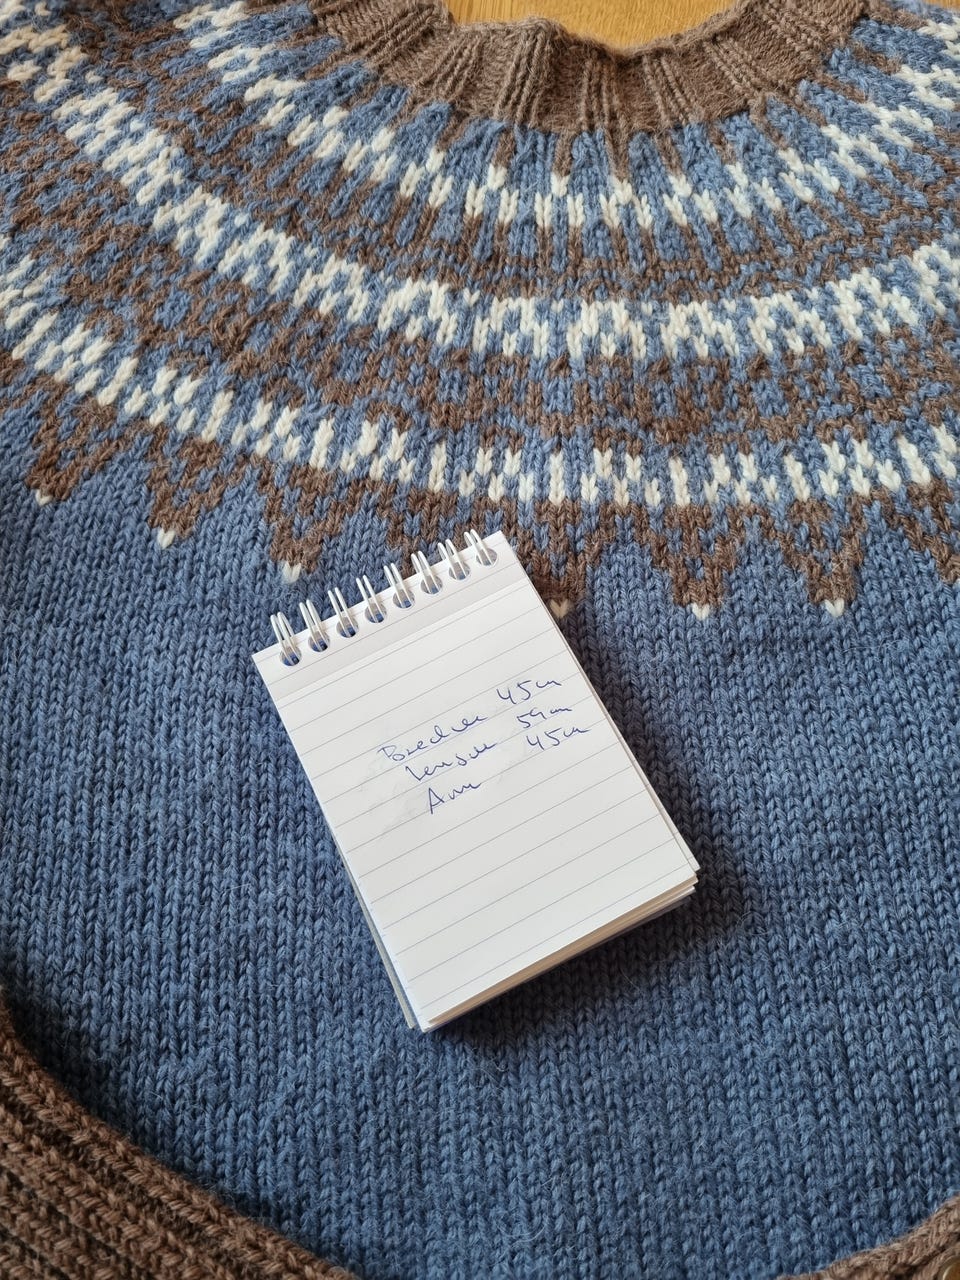 Bredde 45cm
Lengde 59cm
Arm 45cm